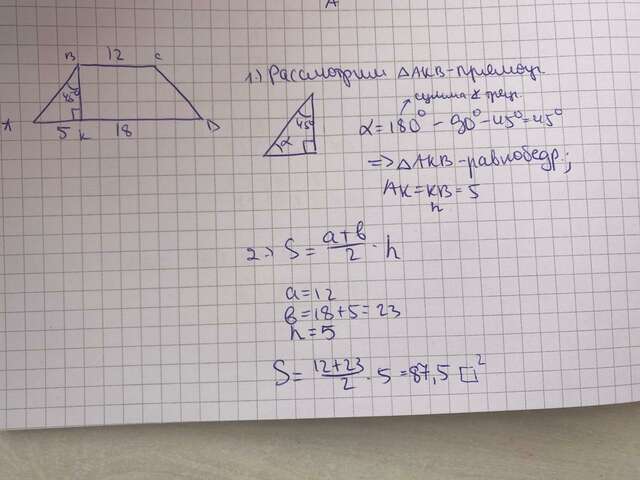 A
B 12 C
45°
A 5 K 18 D
1.) Рассмотрим △AKB-прямоуг.
сумма ∡ треуг.
45°
α
α=180°-90°-45°=45°
=>△AKB-равнобедр.;
AK=KB=5
h
2.) S=(a+b)/2·h
a=12
b=18+5=23
h=5
S=(12+23)/2·5=87,5 □²